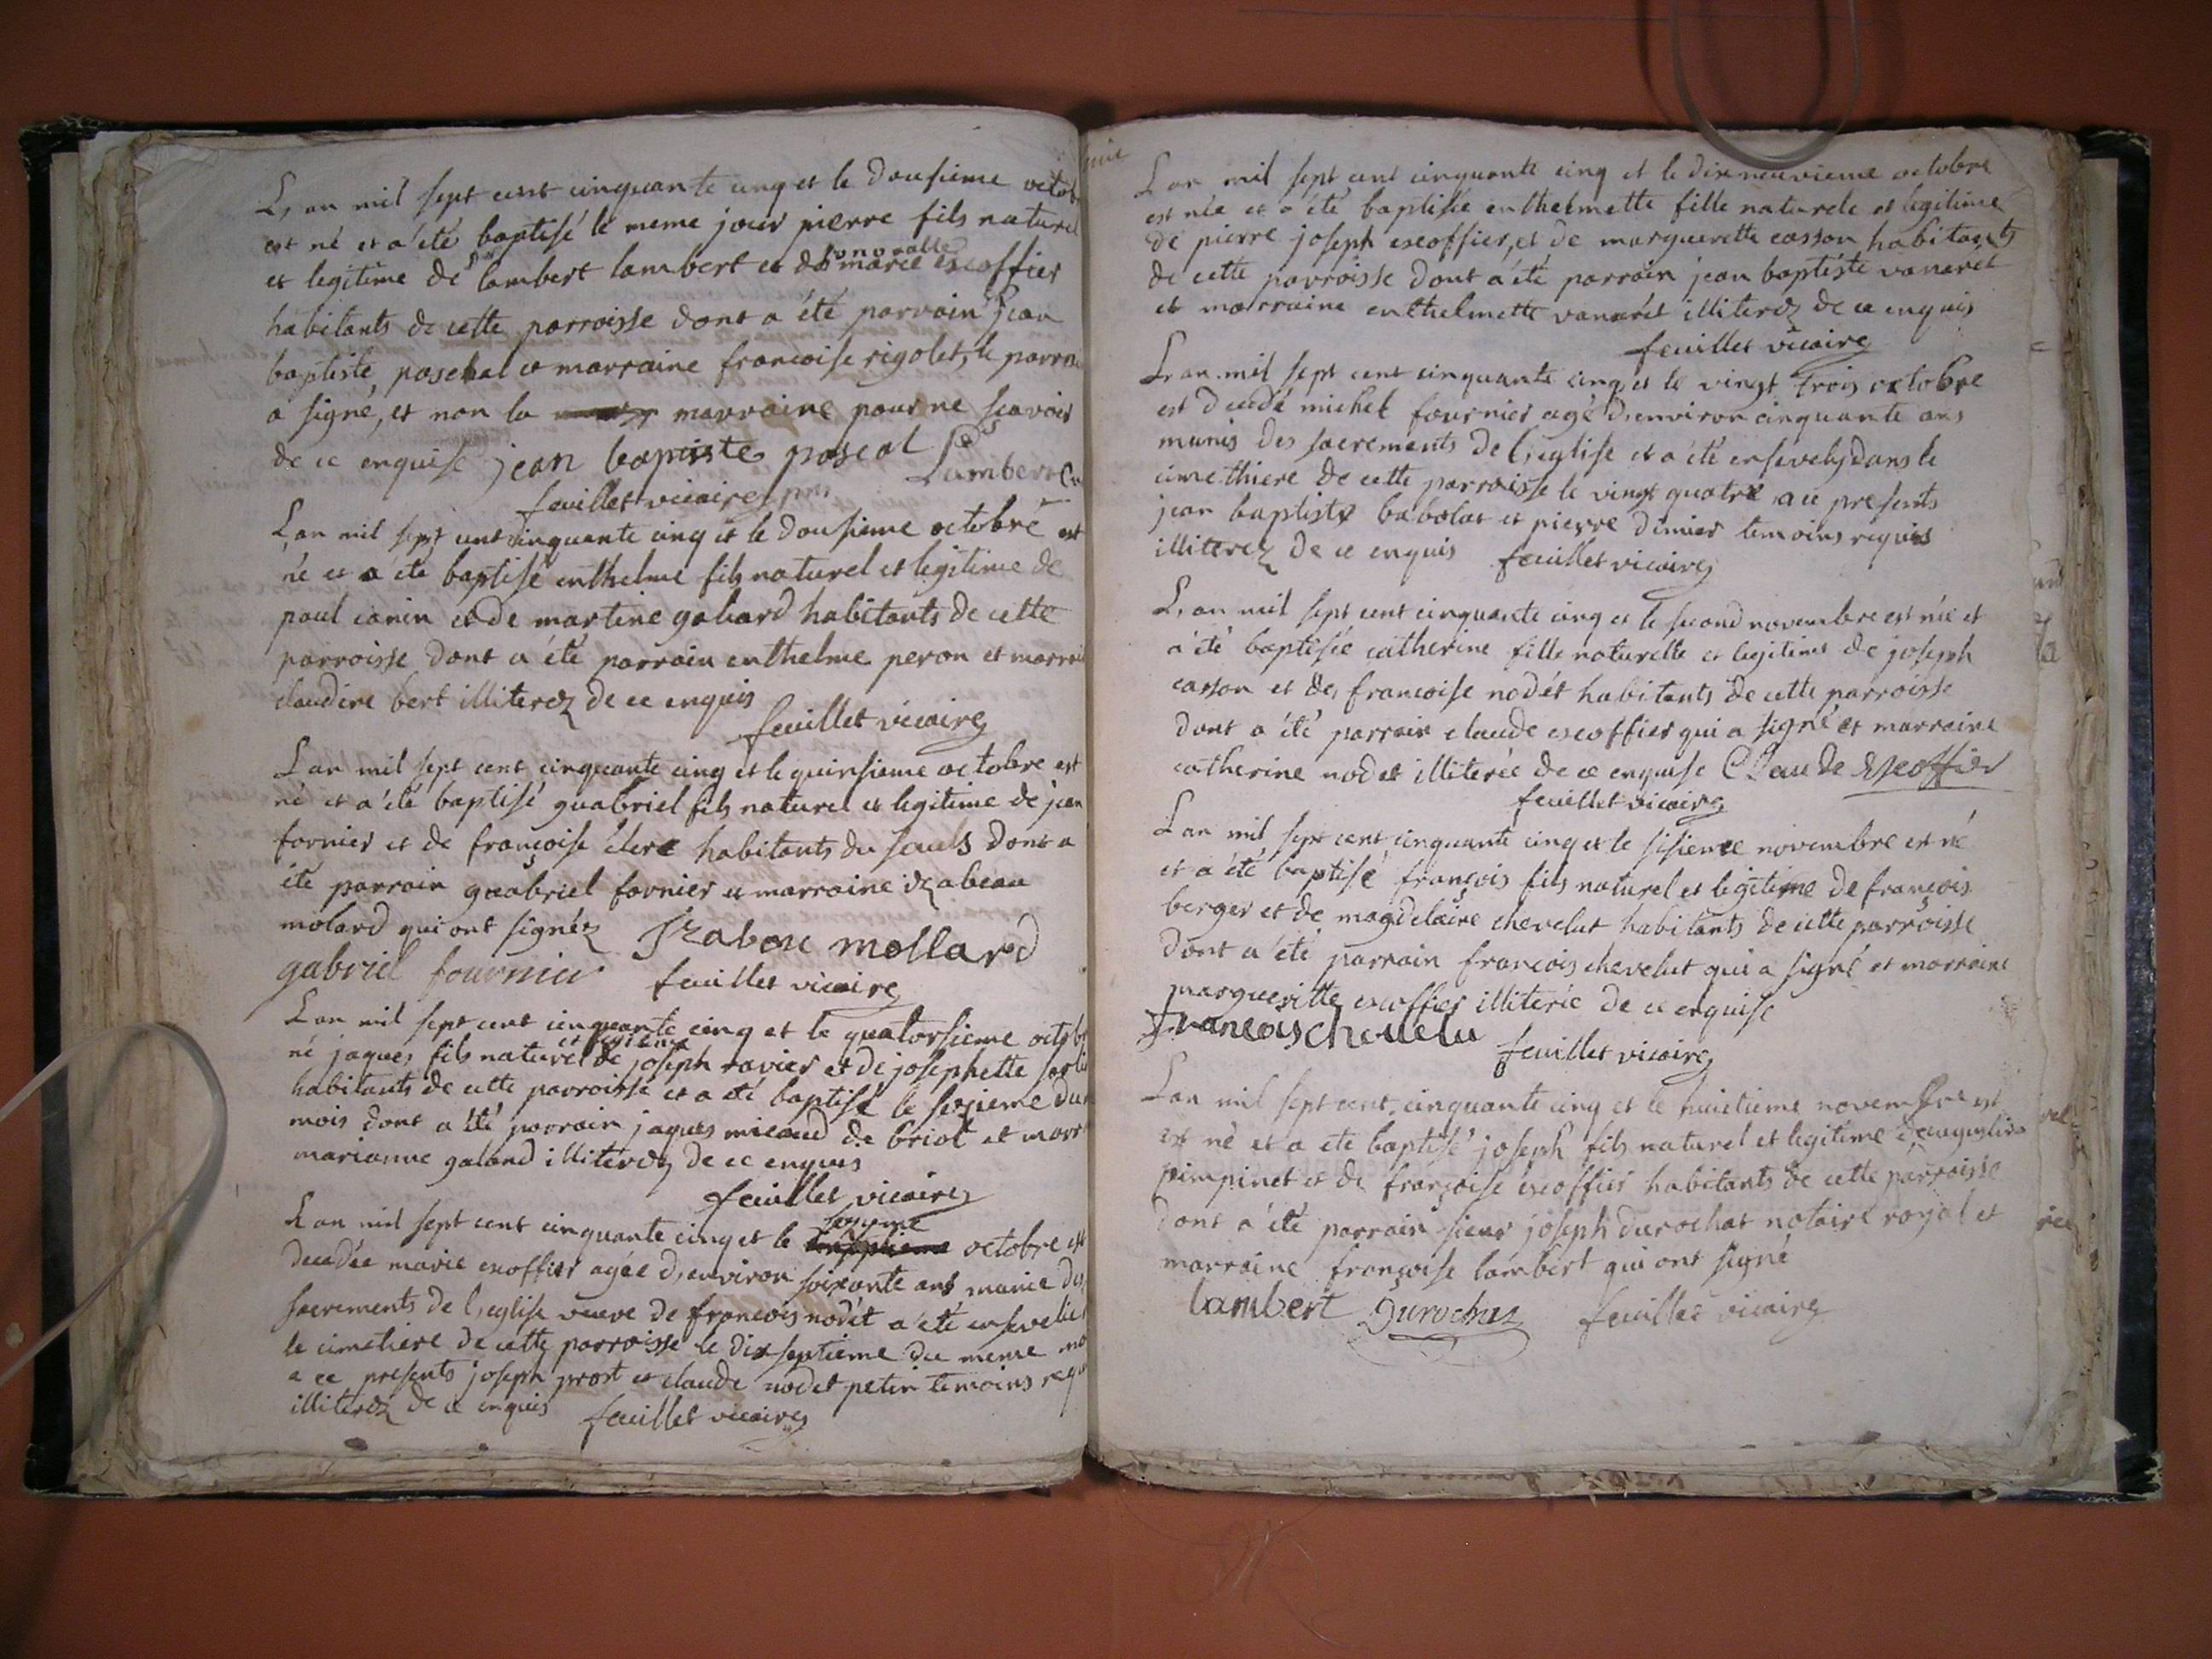 L, an mil sept cent cinquante cinq et le dousieme octob
est né et a été baptisé le meme jour pierre fils naturel
et legitime de sr lambert lambert et de marie escoffier
habitants de cette parroisse dont a été parrain jean
baptiste paschal et marraine francoise rigolet, le parrain
a signé, et non la marraine pour ne scavoir
de ce enquise jean baptiste pascal Lambert
feuillet vicaire
L, an mil sept cent cinquante cinq et le dousieme octobre est
né et a été baptisé enthelme fils naturel et legitime de
paul canin et de martine gabard habitants de cette
parroisse dont a été parrain enthelme peron et marrai
claudine bert illiterez de ce enquis
feuillet vicaire
L an mil sept cent cinquante cinq et le quinsieme octobre est
né et a été baptisé guabriel fils naturel et legitime de jean
fornier et de françoise clere habitants du sauls dont a
été parrain guabriel fornier et marraine izabeau
molard qui ont signéz Izabou mollard
gabriel fournier feuillet vicaire
L an mil sept cent cinquante cinq et le quatorsieme octob
né jaques fils naturel et legitime de joseph ravier et de josephette
habitants de cette parroisse et a été baptisé le sezieme du
mois dont a été parrain jaques micaud de briot et marr
marianne galand illiterez de ce enquis
feuillet vicaire
L an mil sept cent cinquante cinq et le sezieme octobre est
decedée marie escoffier agée d, environ soixante ans munie des
sacrements de l, eglise veuve de francois nodét a été ensevelie
le cimetiere de cette parroisse le dix septieme du meme mo
a ce presents joseph prost et claude nodet petin temoins requ
illiterez de ce enquis feuillet vicaire
L an mil sept cent cinquante cinq et le dixneuvieme octobre
est née et a été baptisée enthelmette fille naturele et legitime
de pierre joseph escoffier, et de marguerette casson habitants
de cette parroisse dont a été parrain jean baptiste vanarét
et marraine enthelmette vanarét illiterez de ce enquis
feuillet vicaire
L, an mil sept cent cinquante cinq et le vingt trois octobre
est decedé michel fournier agé d, environ cinquante ans
munis des sacrements de l, eglise et a été ensevely dans le
cimethiere de cette parroisse le vingt quatre a ce presents
jean baptiste babolat et pierre dimier temoins requis
illiterez de ce enquis feuillet vicaire
L, an mil sept cent cinquante cinq et le second novembre est née et
a été baptisée catherine fille naturelle et legitime de joseph
casson et de francoise nodét habitants de cette parroisse
dont a été parrain claude escoffier qui a signé et marraine
catherine nodet illiterée de ce enquise Claude Escoffier
feuillet vicaire
L an mil sept cent cinquante cinq et le sisieme novembre est né
et a été baptisé françois fils naturel et legitime de françois
berger et de magdelaine chevelut habitants de cette parroisse
dont a été parrain francois chevelut qui a signé et marraine
margueritte escoffier illiterée de ce enquise
francois chevelu feuillet vicaire
L an mil sept cent cinquante cinq et le huictieme novembre est
est né et a été baptisé joseph fils naturel et legitime d'augustin
pimpinet et de françoise escoffier habitants de cette parroisse
dont a été parrain sieur joseph durochat notaire royal et
marraine françoise lambert qui ont signé
lambert Durochat feuillet vicaire